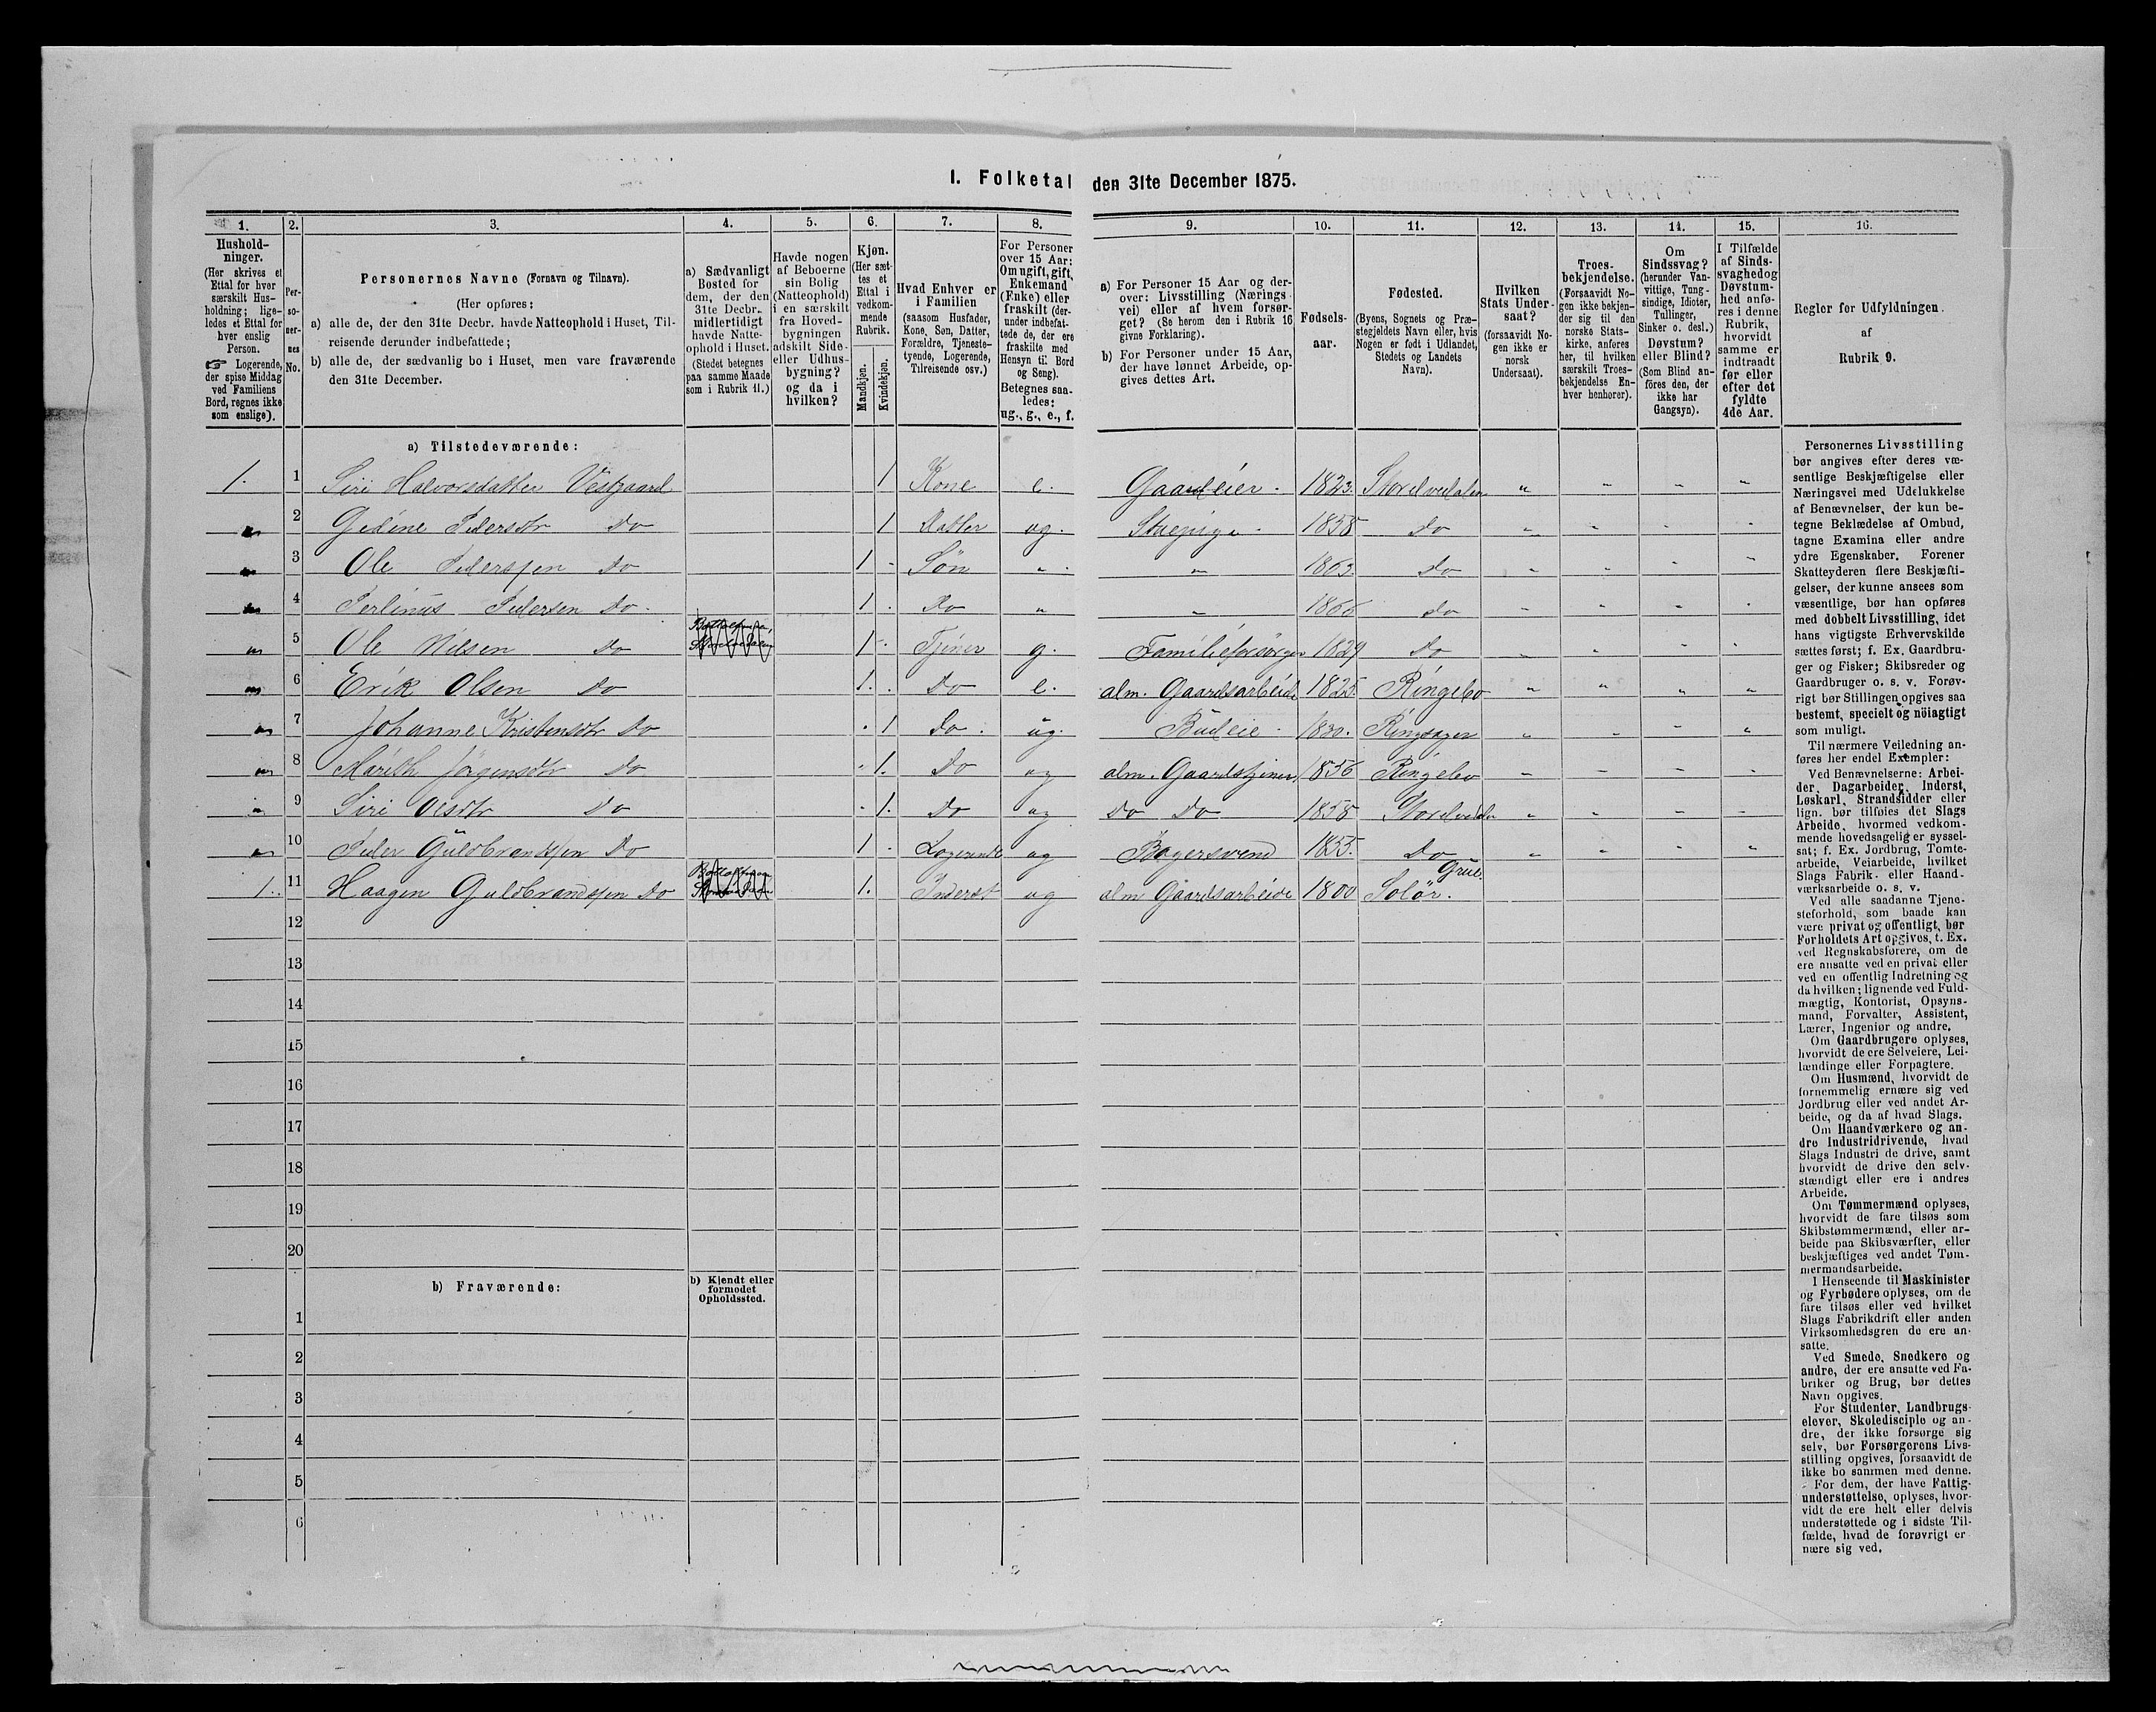 I. Folketal den 31te December 1875.
1. 2. 3. 4. 5. 6. 7. 8. 9. 10. 11. 12. 13. 14. 15. 16.
Hushold-
ninger.
(Her skrives et
Ettal for hver
særskilt Hus-
holdning; lige-
ledes et Ettal for
hver enslig
Person.
☞ Logerende,
der spise Middag
ved Familiens
Bord, regnes ikke
som enslige).
Per-
so-
ner-
nes
No.
Personernes Navne (Fornavn og Tilnavn).
(Her opføres:
a) alle de, der den 31te Decbr. havde Natteophold i Huset, Til-
reisende derunder indbefattede;
b) alle de, der sædvanlig bo i Huset, men vare fraværende
den 31te December.
a) Sædvanligt
Bosted for
dem, der den
31te Decbr.
midlertidigt
havde Natte-
ophold i Huset.
(Stedet betegnes
paa samme Maade
som i Rubrik 11.)
Havde nogen
af Beboerne
sin Bolig
(Natteophold)
i en særskilt
fra Hoved-
bygningen
adskilt Side-
eller Udhus-
bygning?
og da i
hvilken?
Kjøn.
(Her sæt-
tes et
Ettal i
vedkom-
mende
Rubrik.
Mandkjøn.
Kvindekjøn.
Hvad Enhver er
i Familien
(saasom Husfader,
Kone, Søn, Datter,
Forældre, Tjeneste-
tyende, Logerende,
Tilreisende osv.)
For Personer
over 15 Aar:
Om ugift, gift,
Enkemand
(Enke) eller
fraskilt (der-
under indbefat-
tede de, der ere
fraskilte med
Hensyn til Bord
og Seng).
Betegnes saa-
ledes:
ug., g., e., f.
a) For Personer 15 Aar og der-
over: Livsstilling (Nærings-
vei) eller af hvem forsør-
get? (Se herom den i Rubrik 16
givne Forklaring).
b) For Personer under 15 Aar,
der have lønnet Arbeide, op-
gives dettes Art.
Fødsels-
aar.
Fødested.
(Byens, Sognets og Præ-
stegjeldets Navn eller, hvis
Nogen er født i Udlandet,
Stedets og Landets
Navn).
Hvilken
Stats Under-
saat?
(forsaavidt No-
gen ikke er
norsk
Undersaat).
Troes-
bekjendelse.
(Forsaavidt No-
gen ikke bekjen-
der sig til den
norske Stats-
kirke, anføres
her, til hvilken
særskilt Troes-
bekjendelse En-
hver henhører).
Om
Sindssvag?
(herunder Van-
vittige, Tung-
sindige, Idioter,
Tullinger,
Sinker o. desl.)
Døvstum?
eller Blind?
(Som Blind an-
føres den, der
ikke har
Gangsyn).
I Tilfælde
af Sinds-
svaghed og
Døvstum-
hed anfø-
res i denne
Rubrik,
hvorvidt
samme er
indtraadt
før eller
efter det
fyldte
4de Aar.
Regler for Udfyldningen
af
Rubrik 9.
a) Tilstedeværende:
1. 1 Siri Halvorsdatter Vestgaard 1 Kone e. Gaardeier. 1823. Storelvedalen " " " "
" 2 Gedine Pedersdtr Do 1 Datter ug. Stuepige 1858 Do " " " "
" 3 Ole Pederssen Do 1 Søn " " 1863. Do " " " "
" 4 Perlinus Pedersen Do. 1 Do " " 1866 Do " " " "
" 5 Ole Nilsen Do 1 Tjener g. Familieforsørger 1829 Do " " " "
" 6 Erik Olsen Do 1. Do e. alm. Gaardsarbeide 1825. Ringebo " " " "
" 7 Johanne Kristensdtr Do 1 Do. ug. Budeie 1830. Ringsager " " " "
" 8 Marith Jørgensdtr Do 1. Do ug alm. Gaardstjener 1856 Ringebo " " " "
" 9 Siri Olsdtr Do 1. Do ug Do Do 1858 Storelvedalen " " " "
" 10 Peder Guldbrandssen Do 1 Logerende ug Bagersvend 1855. Do " " " "
1. 11 Haagen Guldbrandssen Do 1. Inderst ug alm Gaardsarbeide 1800 Solør. Grue.
12
13
14
15
16
17
18
19
20
b) Fraværende:
b) Kjendt eller
formodet
Opholdssted.
1
2
3
4
5
6
Personernes Livsstilling
bør angives efter deres væ-
sentlige Beskjæftigelse eller
Næringsvei med Udelukkelse
af Benævnelser, der kun be-
tegne Beklædelse af Ombud,
tagne Examina eller andre
ydre Egenskaber. Forener
Skatteyderen flere Beskjæfti-
gelser, der kunne ansees som
væsentlige, bør han opføres
med dobbelt Livsstilling, idet
hans vigtigste Erhvervskilde
sættes først; f. Ex. Gaardbru-
ger og Fisker; Skibsreder og
Gaardbruger o. s. v. Forøv-
rigt bør Stillingen opgives saa
bestemt, specielt og nøiagtigt
som muligt.
Til nærmere Veiledning an-
føres her endel Exempler:
Ved Benævnelserne: Arbei-
der, Dagarbeider, Inderst,
Løskarl, Strandsidder eller
lign. bør tilføies det Slags
Arbeide, hvormed vedkom-
mende hovedsagelig er syssel-
sat; f. Ex. Jordbrug, Tomte-
arbeide, Veiarbeide, hvilket
Slags Fabrik- eller Haand-
værksarbeide o. s. v.
Ved alle saadanne Tjene-
steforhold, som baade kan
være privat og offentligt, bør
Forholdets Art opgives, t. Ex.
ved Regnskabsførere, om de
ere ansatte ved en privat eller
ved en offentlig Indretning og
da hvilken; lignende ved Fuld-
mægtig, Kontorist, Opsyns-
mand, Forvalter, Assistent,
Lærer, Ingeniør og andre.
Om Gaardbrugere oplyses,
hvorvidt de ere Selveiere, Lei-
lændinge eller Forpagtere.
Om Husmænd, hvorvidt de
fornemmelig ernære sig ved
Jordbrug eller ved andet Ar-
beide, og da af hvad Slags.
Om Haandværkere og an-
dre Industridrivende, hvad
Slags Industri de drive, samt
hvorvidt de drive den selv-
stændigt eller ere i andres
Arbeide.
Om Tømmermænd oplyses,
hvorvidt de fare tilsøs som
Skibstømmermænd, eller ar-
beide paa Skibsværfter, eller
beskjæftiges ved andet Tøm-
mermandsarbeide.
I Henseende til Maskinister
og Fyrbødere oplyses, om de
fare tilsøs eller ved hvilket
Slags Fabrikdrift eller anden
Virksomhedsgren de ere an-
satte.
Ved Smede, Snedkere og
andre, der ere ansatte ved Fa-
briker og Brug, bør dettes
Navn opgives.
For Studenter, Landbrugs-
elever, Skoledisciple og an-
dre, der ikke forsørge sig
selv, bør Forsørgerens Livs-
stilling opgives, forsaavidt de
ikke bo sammen med denne.
For dem, der have Fattig-
understøttelse, oplyses, hvor-
vidt de ere helt eller delvis
understøttede og i sidste Til-
fælde, hvad de forøvrigt er-
nære sig ved.